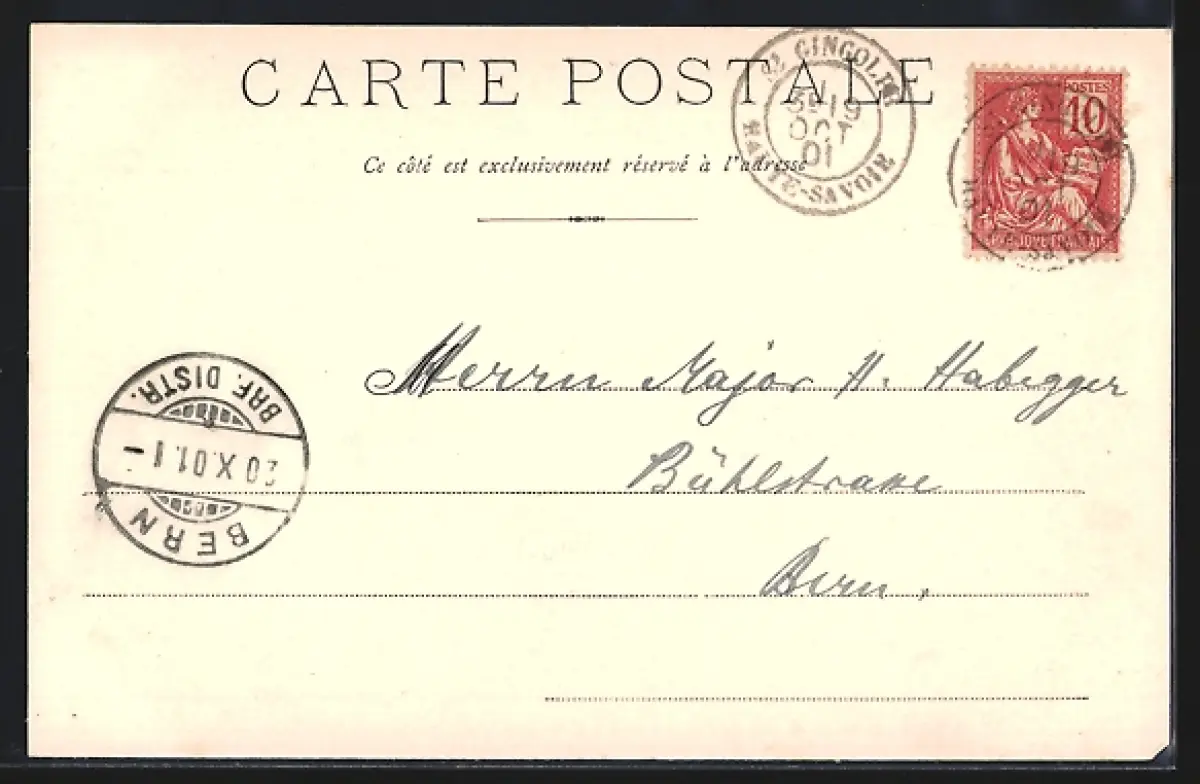 CARTE POSTALE
Ce côté est exclusivement réservé à l'adresse
St GINGOLPH
19
OCT
01
HAUTE-SAVOIE
POSTES
10
Herrn Major H. Habegger
Bühlstrasse
Bern.
BRF. DISTR.
20 X.01. 1 -
BERN